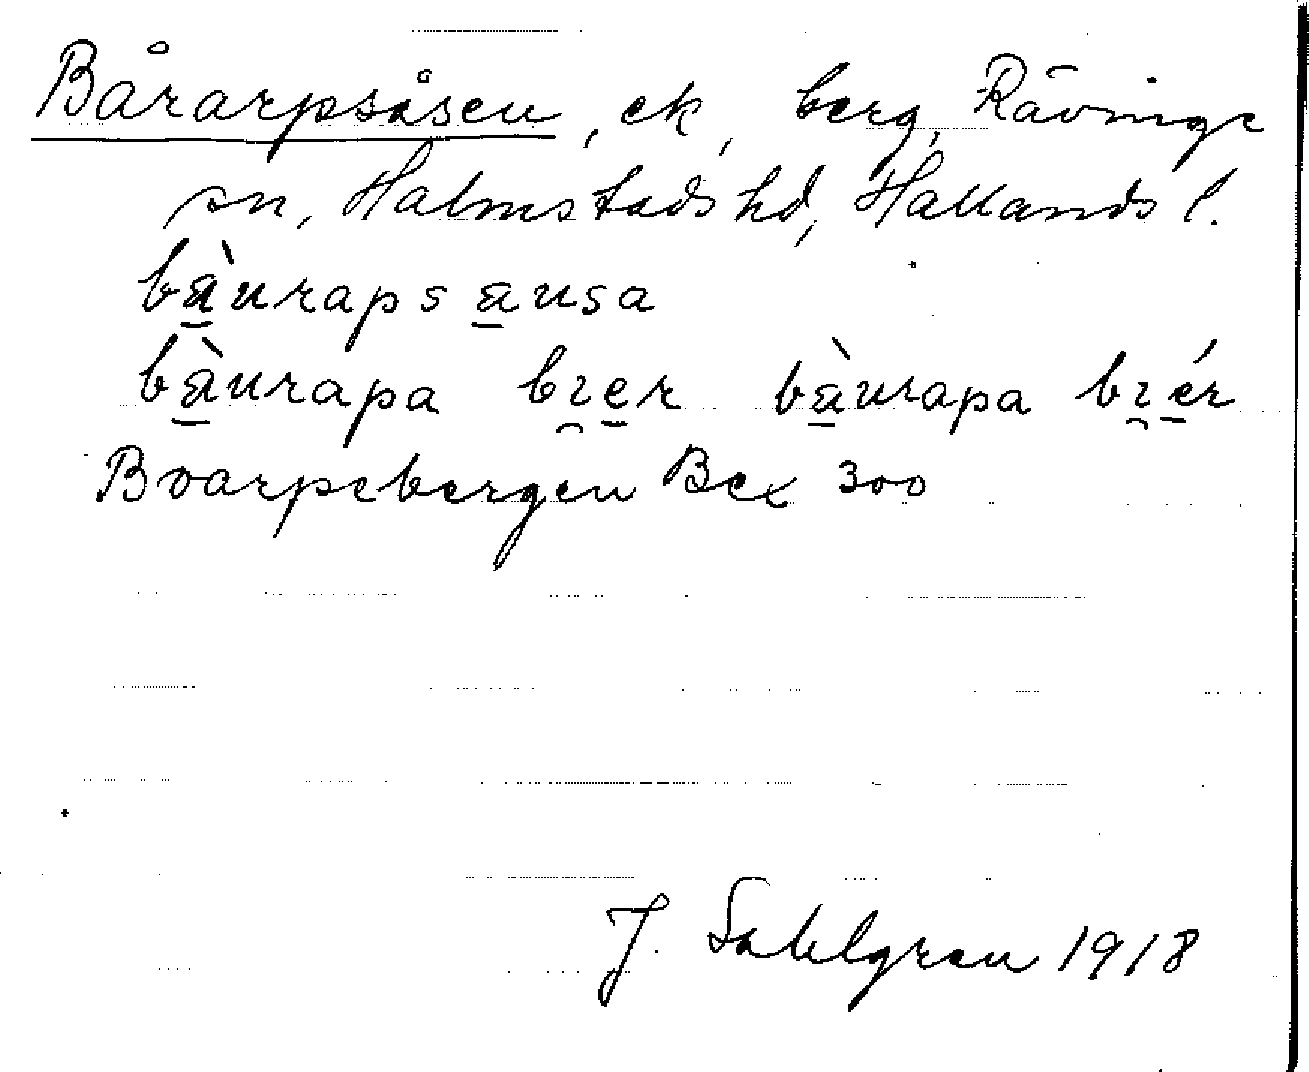 Bårarpsåsen, ek, berg, Rävinge
sn, Halmstads hd, Hallands l.
bàu̱raps a̱usa
bàurapa bɿer bàurapa bɿér
Boarpebergen Bex 300
J. Sahlgren 1918